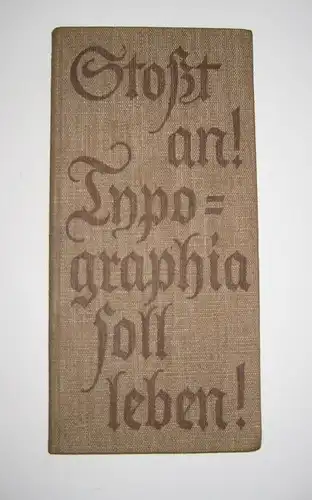 Stoßt
an!
Typo=
graphia
soll
leben!